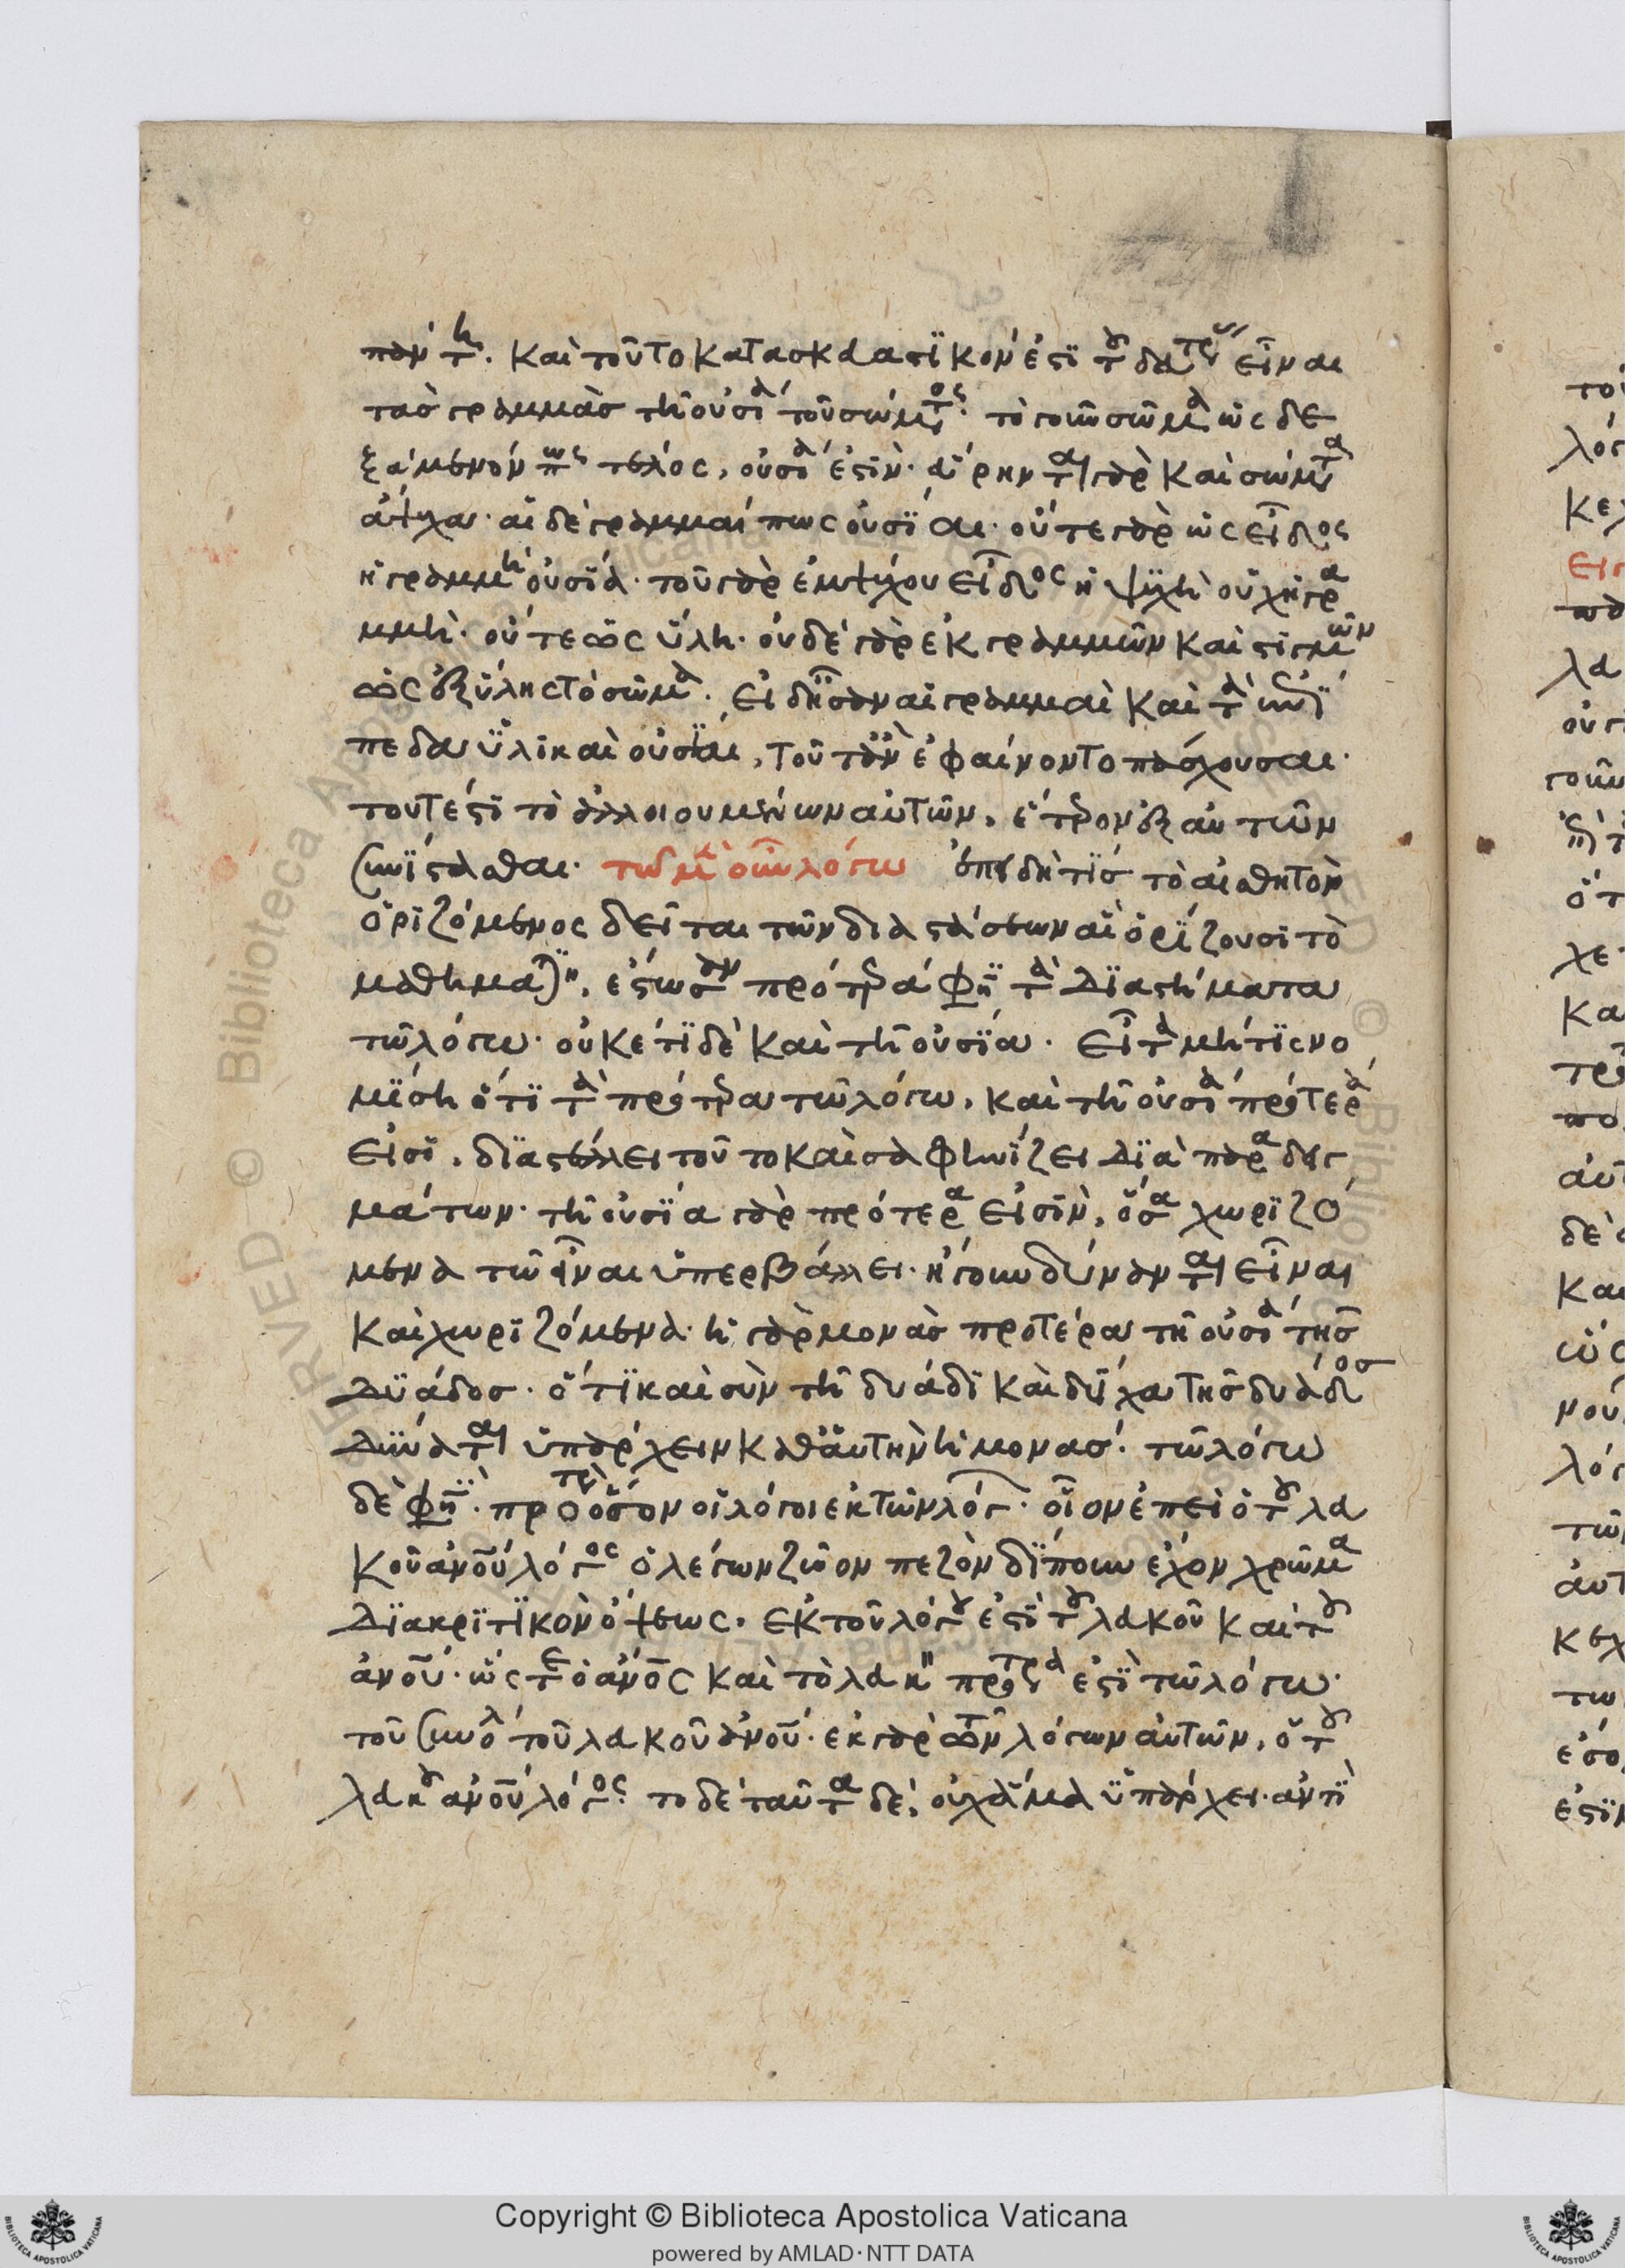 πάντη. καὶ τοῦτο κατασκευαστικόν ἐστι τοῦ δευτέρας εἶναι
τὰς γραμμὰς τῆ οὐσία τοῦ σώματος. τὸ γοῦν σῶμα ὡς δε
ξάμενόν πως τέλος, οὐσία ἐστίν. εἴρηνται γὰρ καὶ σώματα
ἄψυχα. αἱ δὲ γραμμαί πως οὐσίαι. οὔτε γὰρ ὡς εἶδος
ἡ γραμμὴ οὐσία. τοῦ γὰρ ἐμψύχου εἶδος ἡ ψυχὴ οὐχ ἡ γρα
μμή. οὔτε ὡς ὕλη. οὐδὲ γὰρ ἐκ γραμμῶν καὶ στιγμῶν
ὡς ἐξ ὕλης τὸ σῶμα. εἰ δ' ἦσαν αἱ γραμμαὶ καὶ τὰ ἐπί
πεδα ὑλικαὶ οὐσίαι, τοῦτ' ἂν ἐφαίνοντο πάσχουσαι.
τουτέστι τὸ ἀλλοιουμένων αὐτῶν, ἕτερον ἐξ αὐτῶν
συνίστασθαι. τῶ μὲν οὖν λόγω ἐπειδή τις τὸ αἰσθητὸν
ὁριζόμενος δεῖται τῶν διαστάσεων αἳ ὁρίζουσι τὸ
μαθηματικόν, ἔστωσαν πρότερά φησι τὰ διαστήματα
τῶ λόγω. οὐκέτι δὲ καὶ τῆ οὐσία. εἶτα μή τις νο
μίση ὅτι τὰ πρότερα τῶ λόγω, καὶ τῆ οὐσία πρότερά
εἰσι, διαστέλλει τοῦτο καὶ σαφηνίζει διὰ παραδειγ
μάτων. τῆ οὐσία γὰρ πρότερα εἰσὶν, ὅσα χωριζό
μενα τῶ εἶναι ὑπερβάλλει. ἤγουν δύνανται εἶναι
καὶ χωριζόμενα. ἡ γὰρ μονὰς προτέρα τῆ οὐσία τῆς
δυάδος. ὅτι καὶ σὺν τῆ δυάδι καὶ δίχα τῆς δυάδος
δύναται ὑπάρχειν καθ' αὑτὴν ἡ μονάς. τῶ λόγω
δὲ φησὶ. πρότερα ὅσων οἱ λόγοι ἐκ τῶν λόγων. οἷον ἐπεὶ ὁ τοῦ λευ
κοῦ ἀνου λόγος ὁ λέγων ζῶον πεζὸν δίπουν ἔχον χρῶμα
διακριτικὸν ὄψεως, ἐκ τοῦ λόγου ἐστὶ τοῦ λευκοῦ καὶ τοῦ
ἀνου. ὥστε ὁ ἀνος καὶ τὸ λευκὸν πρότερά ἐστι τῶ λόγω.
τοῦ συνόλου τοῦ λευκοῦ ἀνου. ἐκ γὰρ τῶν λόγων αὐτῶν, ὁ τοῦ
λευκοῦ ἀνου λόγος. τὸ δὲ ταῦτα δὲ, οὐχ ἅμα ὑπάρχει. ἀντὶ